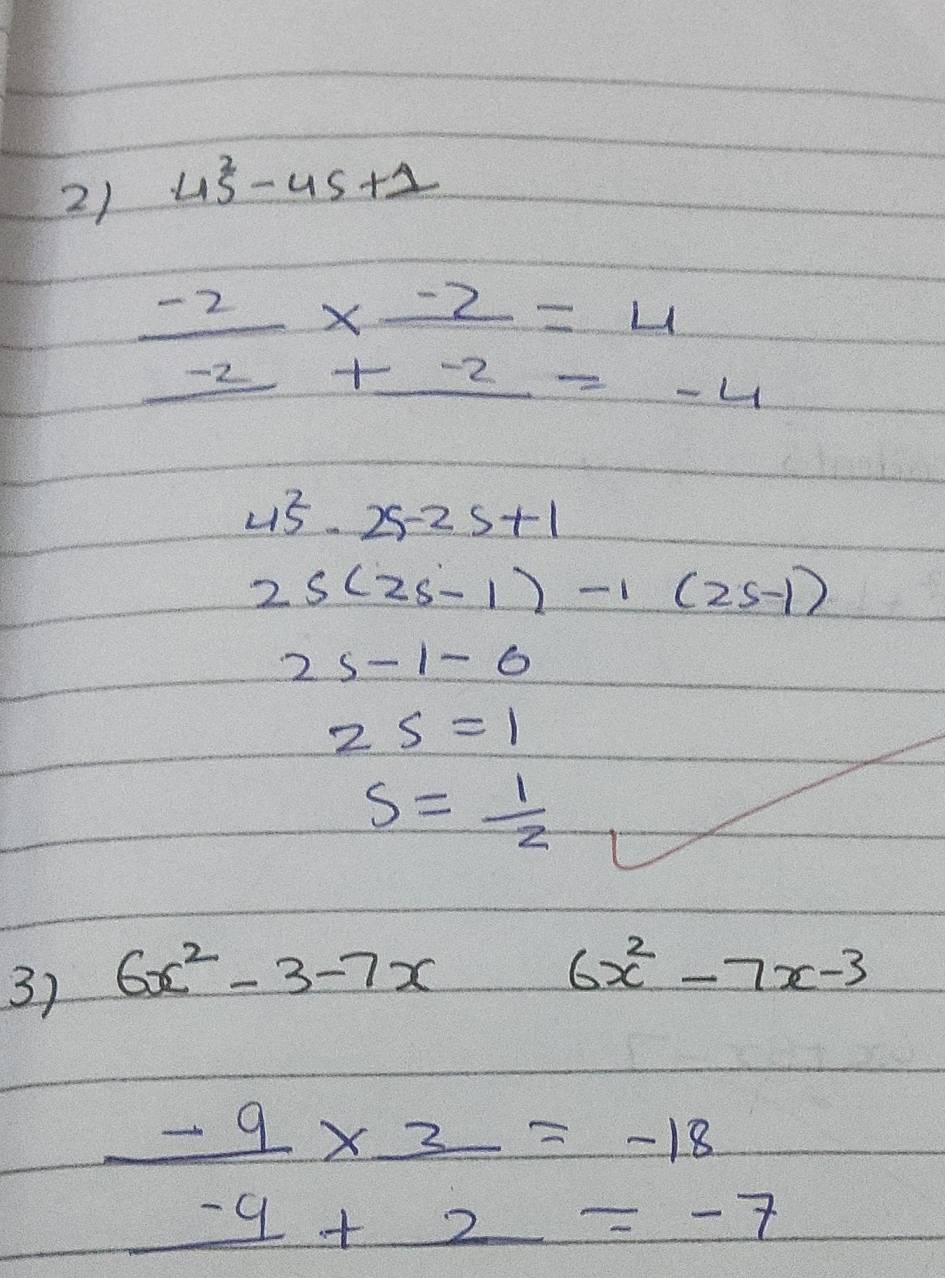 2) 4s² - 4s + 1
-2 × -2 = 4
-2 + -2 = -4
4s² - 2s - 2s + 1
2s(2s - 1) - 1 (2s - 1)
2s - 1 - 0
2s = 1
s = 1/2
3) 6x² - 3 - 7x 6x² - 7x - 3
-9 × 2 = -18
-9 + 2 = -7